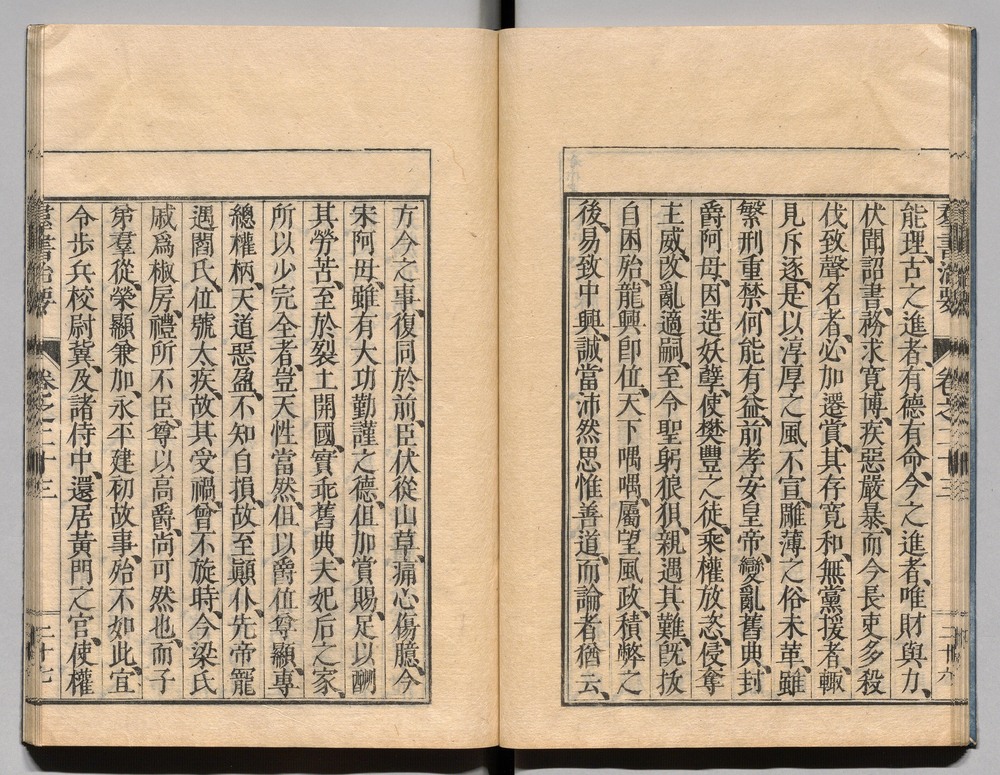 能理、古之進者、有德有命、今之進者、唯財與力、
伏聞詔書、務求寬博、疾惡嚴暴、而今長吏多殺
伐致聲名者、必加遷賞、其存寬和、無黨援者、輙
見斥逐、是以淳厚之風不宣、雕薄之俗未革、雖
繁刑重禁、何能有益、前孝安皇帝、變亂舊典、封
爵阿母、因造妖孽、使樊豐之徒、乘權放恣、侵奪
主威、改亂適嗣、至令聖躬狼狽、親遇其難、既拔
自困殆、龍興卽位、天下喁喁、屬望風政、積弊之
後、易致中興、誠當沛然思惟善道、而論者猶云、
方今之事、復同於前、臣伏從山草、痛心傷臆、今
宋阿母、雖有大功勤謹之德、但加賞賜、足以酬
其勞苦、至於裂土開國、實乖舊典、夫妃后之家、
所以少完全者、豈天性當然、但以爵位尊顯、專
總權柄、天道惡盈、不知自損、故至顚仆、先帝寵
遇閻氏、位號太疾、故其受禍、曾不旋時、今梁氏
戚爲椒房、禮所不臣、尊以高爵、尚可然也、而子
弟羣從、榮顯兼加、永平建初故事、殆不如此、宜
令步兵校尉冀、及諸侍中、還居黃門之官、使權
羣書治要 卷之二十三 二十七